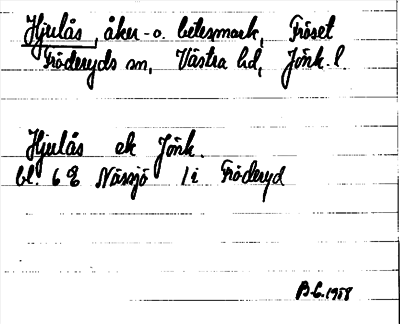 Hjulås, åker- o. betesmark, Fröset
Fröderyds sn, Västra hd, Jönk. l.
Hjulås ek Jönk.
bl. 6 E Nässjö 1 i Fröderyd
B.G. 1958